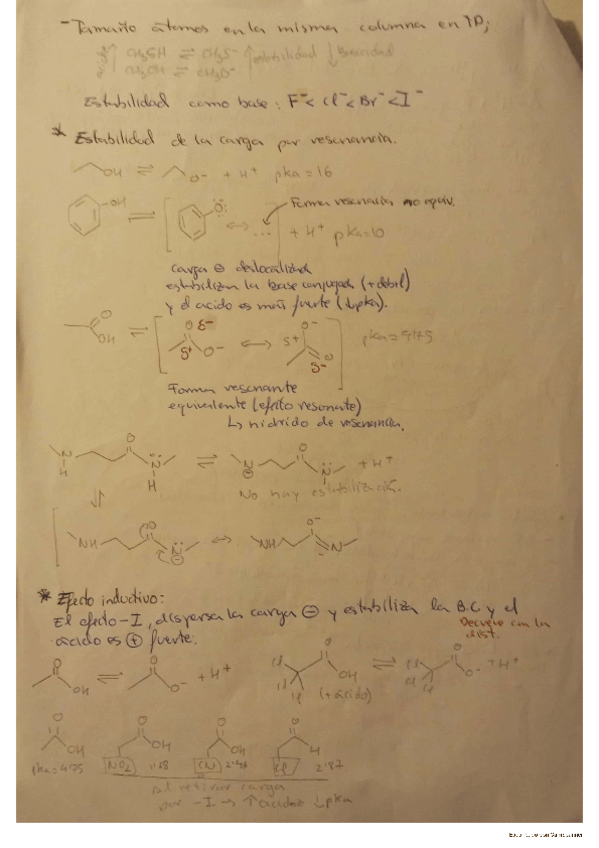 - Tamaño átomos en la misma columna en TP;
acidez ↑ CH3SH ⇌ CH3S⁻ ↑ estabilidad ↓ Basicidad
CH3OH ⇌ CH3O⁻
Estabilidad como base: F⁻ < Cl⁻ < Br⁻ < I⁻
* Estabilidad de la carga por resonancia.
OH ⇌ O⁻ + H⁺ pka = 16
OH ⇌ [ O: ↔ ... ] Forma resonancia no equiv.
+ H⁺ pka=10
carga ⊖ deslocalizada
estabilizan la base conjugada (+ débil)
y el acido es más fuerte (↓pka).
O OH ⇌ [ O δ⁻ δ⁺ O⁻ ↔ O⁻ δ⁺ O δ⁻ ] pka = 4'75
Forma resonante
equivalente (efecto resonante)
↳ híbrido de resonancia.
N H O N H ⇌ N ⊖ O N H + H⁺
No hay estabilización.
⇌
[ NH O N ⊖ ↔ NH O⁻ N
* Efecto inductivo:
El efecto -I, dispersa la carga ⊖ y estabiliza la B.C y el
ácido es ⊕ fuerte.
Decrece con la
dist.
O OH ⇌ O O⁻ + H⁺ Cl Cl Cl O OH ⇌ Cl Cl Cl O O⁻ + H⁺
(+ ácido)
O OH O OH O OH O
pka = 4'75 NO2 1'68 CN Cl 2'87
al retirar carga
por -I → ↑ acidez ↓pka